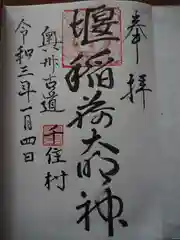 奉拝
堰稲荷大明神
奥州古道
千住村
令和三年一月四日